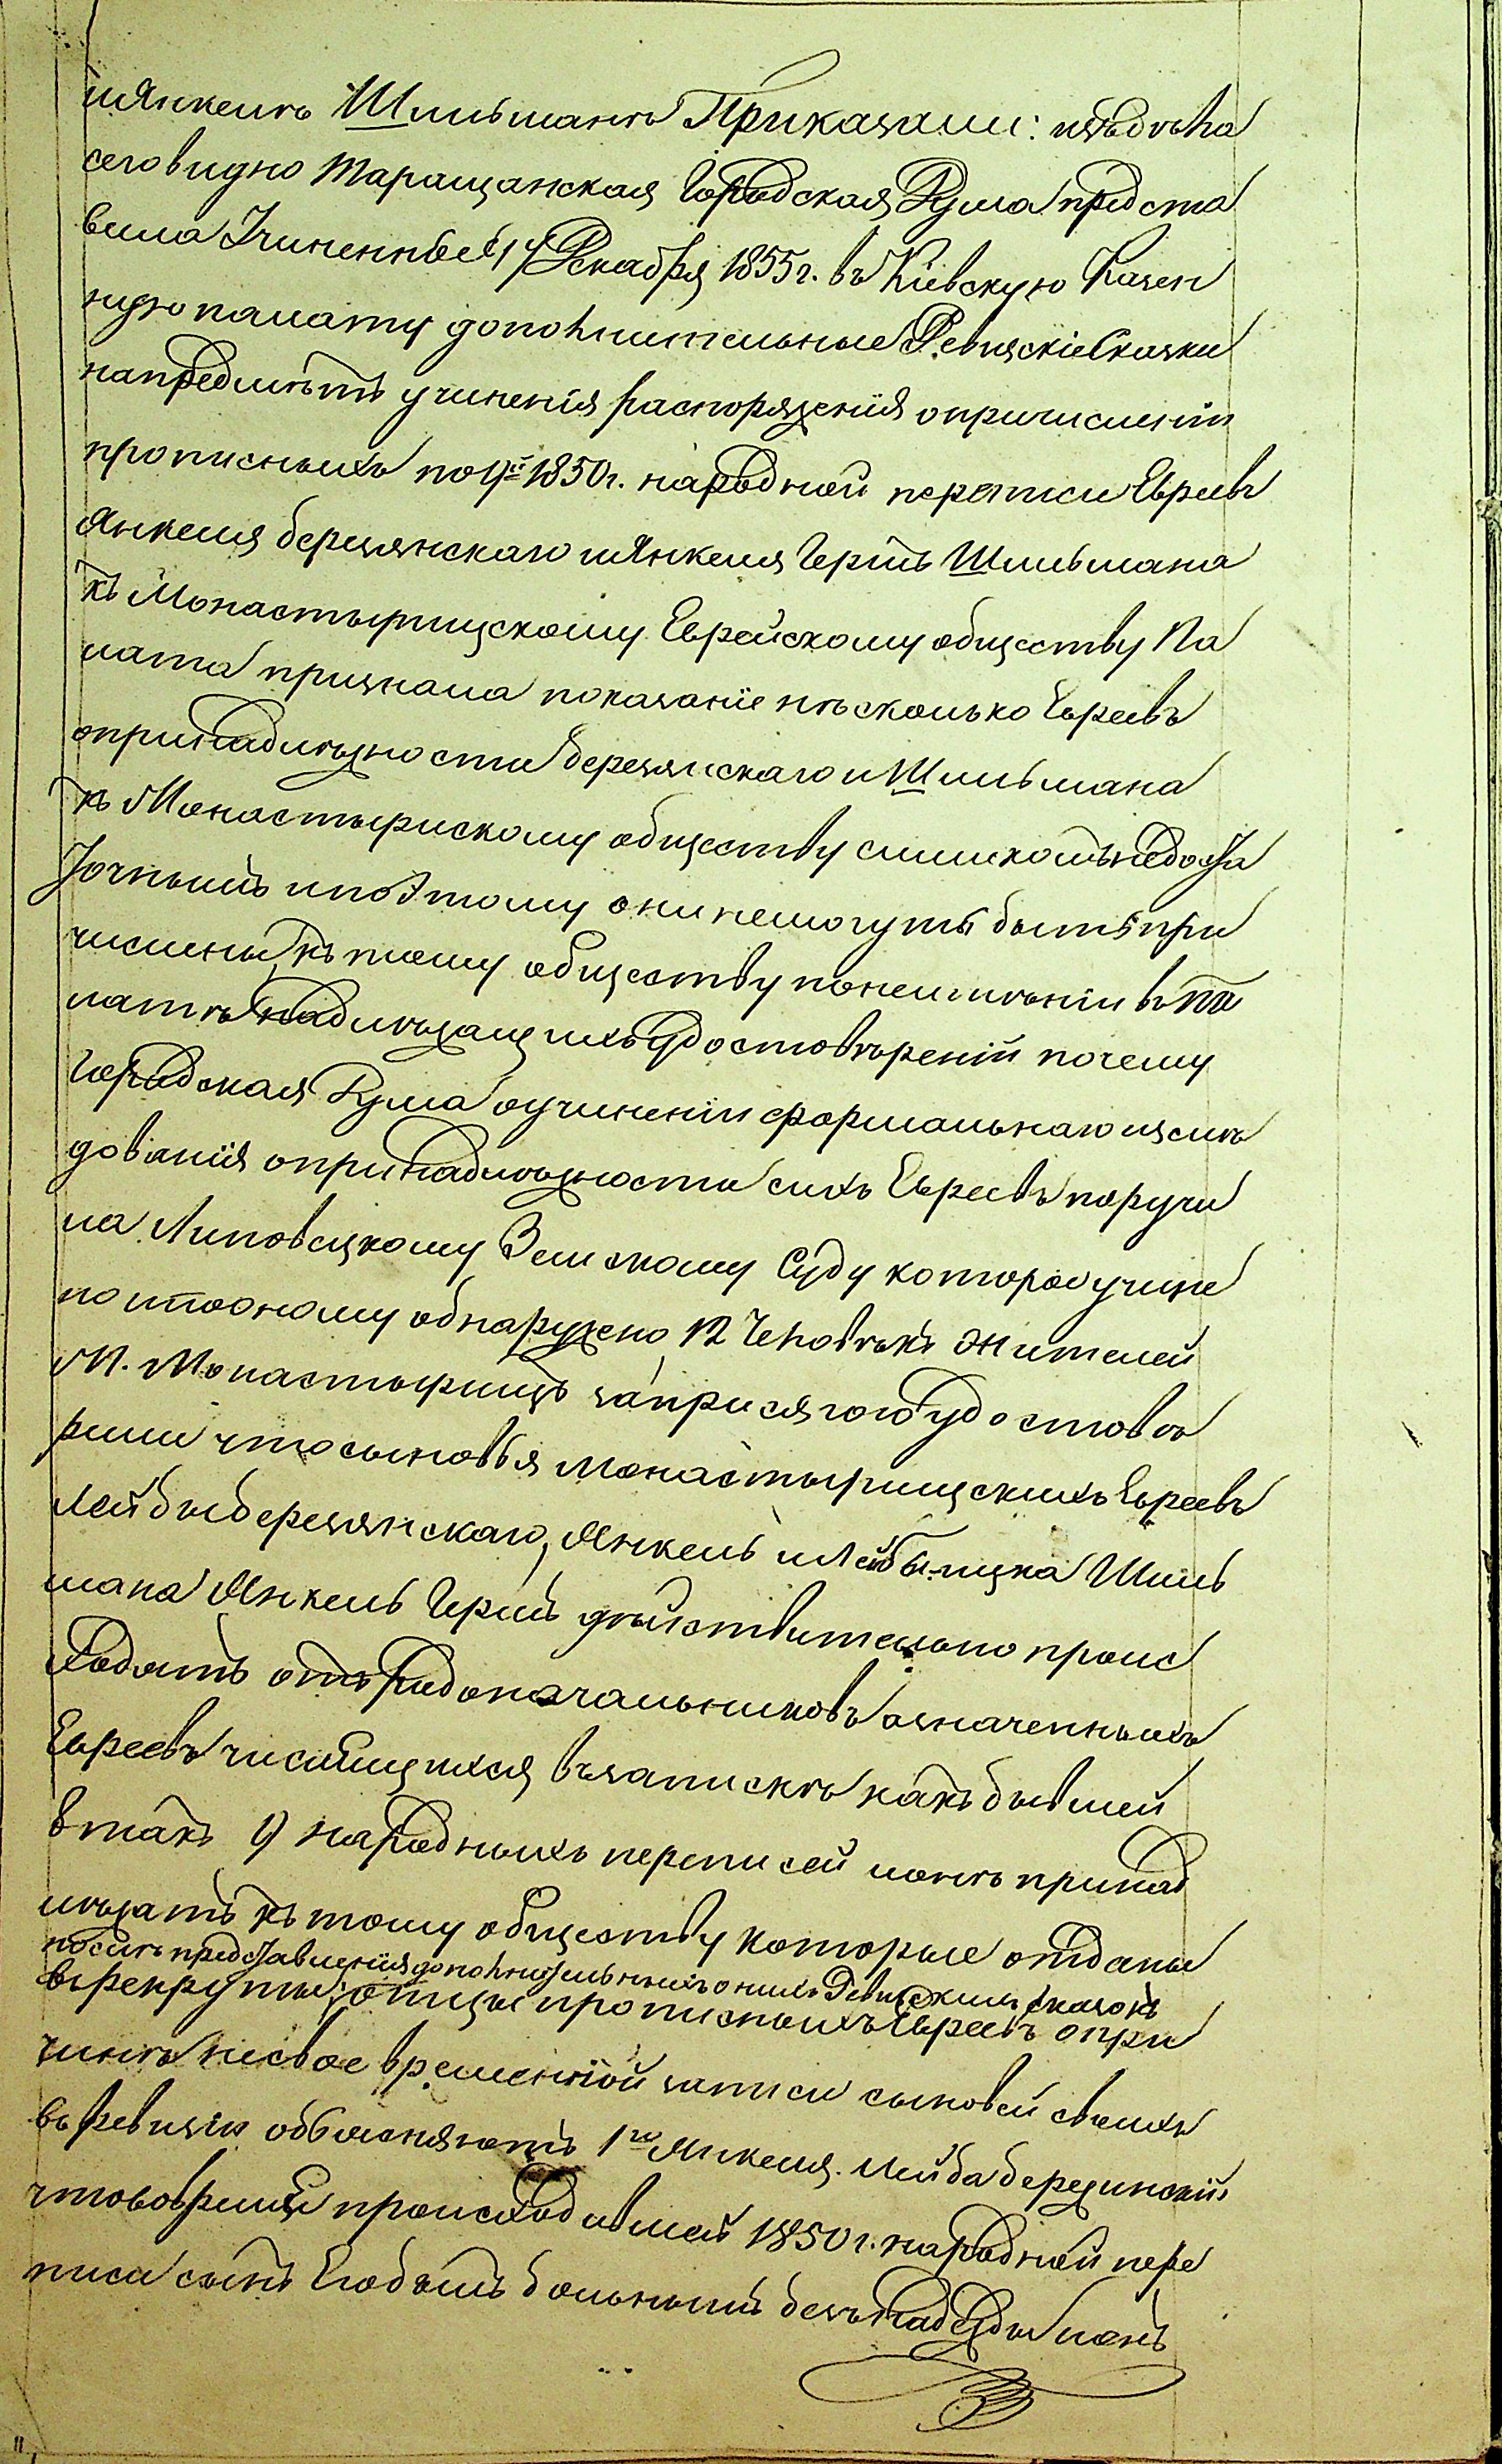 иЯнкель Шмльманъ Приказали: изъдѣла
сего видно Таращанская Городская Дума предста
вила Учиненные 17 Декабря 1855 г. въ Кіевскую Казен
ную палату дополнительные Ревизскіе Сказки
напредмѣтъ учиненія распоряженія опричисленіи
прописныхъ по 9й 1850 г. народной переписи Евреевъ
Янкеля Березянскаго иЯнкеля Герша Шмльмана
къ Монастырищскому Еврейскому обществу Па
лата признала показаніе нѣсколько Евреевъ
опринадлежности Березянскаго и Шмльмана
къ Монастырискому обществу слишкомъ недоста
точнымъ ипоэтому они немогутъ быть при
числены къ тому обществу понеимѣнію въ па
латѣ надлежащихъ удостовѣреній почему
Городская Дума оучиненіи формальнаго изслѣ
дованія опринадлежности сихъ Евреевъ поручи
ла Липовецкому Земскому Суду которое учине
но и по оному обнаружено 12 Человѣкъ жителей
М. Монастырищъ заприсягою удостовѣ
рили что сыновья Монастырищскихъ Евреевъ
Лейбы Березянскаго, Янкель и Лейбы-ицка Шмль
мана Янкель Гершъ дѣйствительно проис
ходятъ отъ Родоначальниковъ означенныхъ
Евреевъ числящихся въ запискѣ какъ бывшей
8 такъ 9 народныхъ переписей и онѣ принад
лежатъ къ тому обществу которые отданы
послѣ представленія дополнительныхъ онихъ Ревизскихъ Сказокъ
въ рекруты; отцы прописныхъ Евреевъ опри
чинѣ несвоевременной записи сыновей своихъ
въ ревизіи объясняютъ 1го Янкеля. Лейба Березинскій
что во время происходившей 1850 г. народной пере
писи сынъ Его былъ больнымъ безъ надежды и онъ